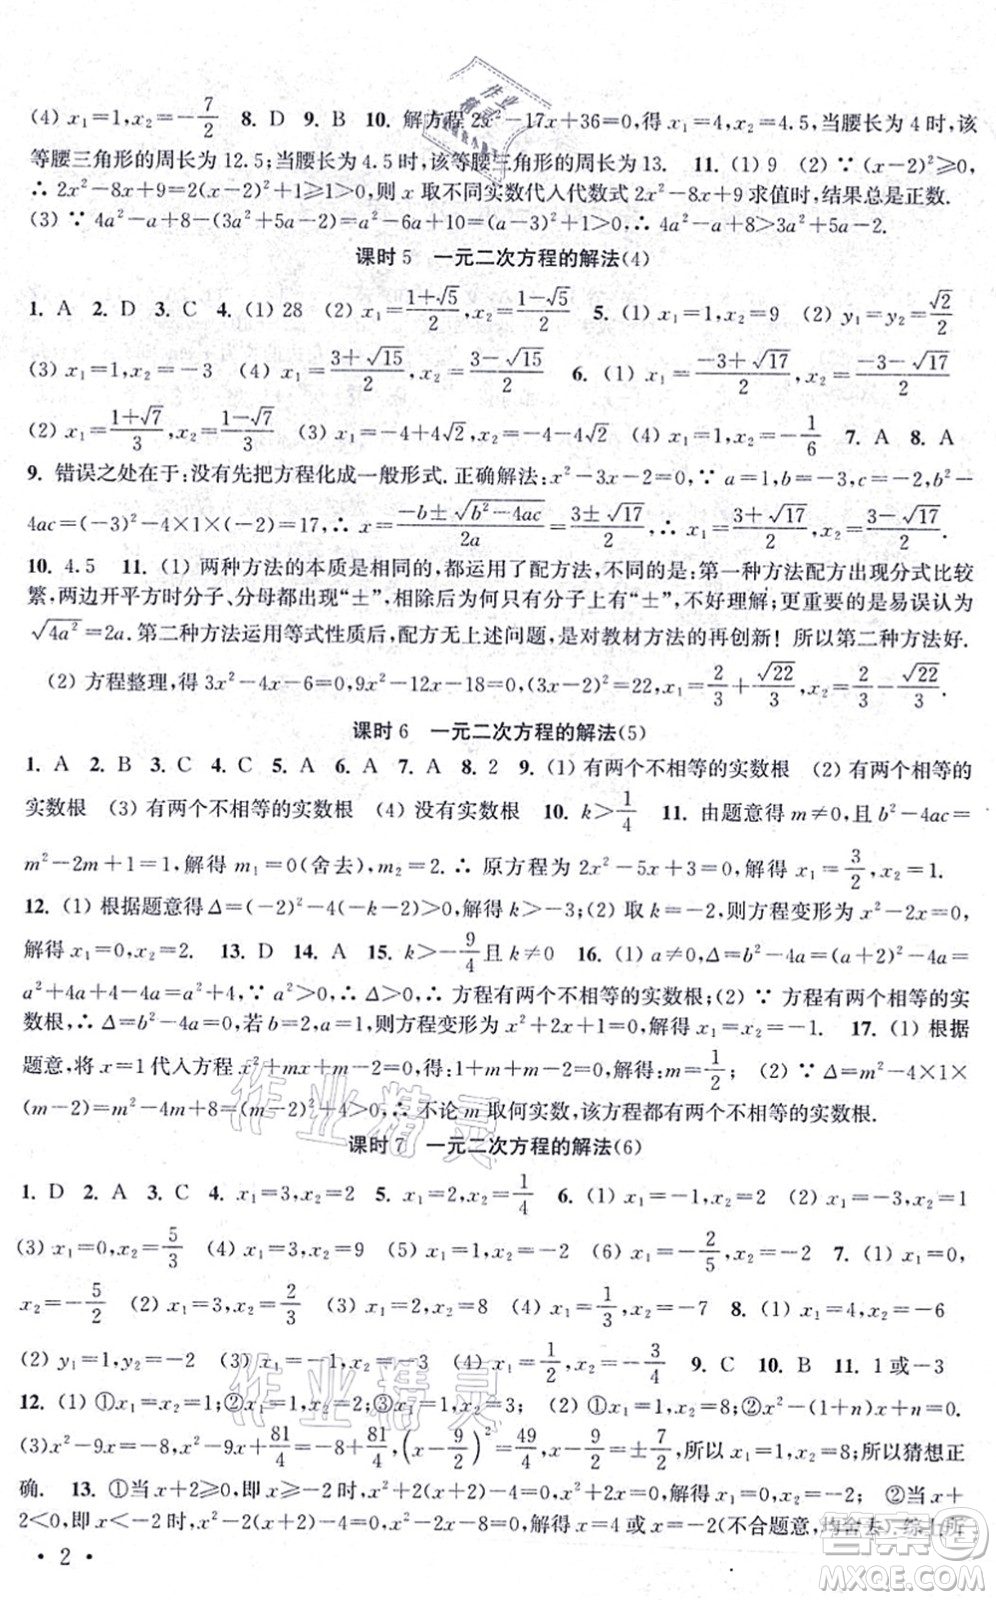 (4) x₁=1,x₂=-7/2 8. D 9. B 10. 解方程 2x²-17x+36=0,得 x₁=4,x₂=4.5,当腰长为 4 时,该
等腰三角形的周长为 12.5;当腰长为 4.5 时,该等腰三角形的周长为 13. 11. (1) 9 (2) ∵ (x-2)²≥0,
∴ 2x²-8x+9=2(x-2)²+1≥1>0,则 x 取不同实数代入代数式 2x²-8x+9 求值时,结果总是正数.
(3) ∵ 4a²-a+8-(3a²+5a-2)=a²-6a+10=(a-3)²+1>0,∴ 4a²-a+8>3a²+5a-2.
课时 5 一元二次方程的解法(4)
1. A 2. D 3. C 4. (1) 28 (2) x₁=(1+√5)/2,x₂=(1-√5)/2 5. (1) x₁=1,x₂=9 (2) y₁=y₂=√2/2
(3) x₁=1,x₂=-3 (4) x₁=(3+√15)/2,x₂=(3-√15)/2 6. (1) x₁=(-3+√17)/2,x₂=(-3-√17)/2
(2) x₁=(1+√7)/3,x₂=(1-√7)/3 (3) x₁=-4+4√2,x₂=-4-4√2 (4) x₁=1,x₂=-1/6 7. A 8. A
9. 错误之处在于:没有先把方程化成一般形式.正确解法:x²-3x-2=0,∵ a=1,b=-3,c=-2,b²-
4ac=(-3)²-4×1×(-2)=17,∴ x=(-b±√(b²-4ac))/2a=(3±√17)/2,∴ x₁=(3+√17)/2,x₂=(3-√17)/2.
10. 4.5 11. (1) 两种方法的本质是相同的,都运用了配方法,不同的是:第一种方法配方出现分式比较
繁,两边开平方时分子、分母都出现“±”,相除后为何只有分子有“±”,不好理解;更重要的是易误认为
√4a²=2a.第二种方法运用等式性质后,配方无上述问题,是对教材方法的再创新! 所以第二种方法好.
(2) 方程整理,得 3x²-4x-6=0,9x²-12x-18=0,(3x-2)²=22,x₁=2/3+√22/3,x₂=2/3-√22/3.
课时 6 一元二次方程的解法(5)
1. A 2. B 3. C 4. B 5. A 6. A 7. A 8. 2 9. (1) 有两个不相等的实数根 (2) 有两个不相等的
实数根 (3) 有两个不相等的实数根 (4) 没有实数根 10. k>1/4 11. 由题意得 m≠0,且 b²-4ac=
m²-2m+1=1,解得 m₁=0(舍去),m₂=2.∴ 原方程为 2x²-5x+3=0,解得 x₁=3/2,x₂=1.
12. (1) 根据题意得 Δ=(-2)²-4(-k-2)>0,解得 k>-3;(2) 取 k=-2,则方程变形为 x²-2x=0,
解得 x₁=0,x₂=2. 13. D 14. A 15. k>-9/4且 k≠0 16. (1) a≠0,Δ=b²-4a=(a+2)²-4a=
a²+4a+4-4a=a²+4,∵ a²>0,∴ Δ>0,∴ 方程有两个不相等的实数根;(2) ∵ 方程有两个相等的实
数根,∴ Δ=b²-4a=0,若 b=2,a=1,则方程变形为 x²+2x+1=0,解得 x₁=x₂=-1. 17. (1) 根据
题意,将 x=1 代入方程 x²+mx+m-2=0,得:1+m+m-2=0,解得:m=1/2; (2) ∵ Δ=m²-4×1×
(m-2)=m²-4m+8=(m-2)²+4>0,∴ 不论 m 取何实数,该方程都有两个不相等的实数根.
课时 7 一元二次方程的解法(6)
1. D 2. A 3. C 4. x₁=3,x₂=2 5. x₁=2,x₂=1/4 6. (1) x₁=-1,x₂=2 (2) x₁=-3,x₂=1
(3) x₁=0,x₂=5/3 (4) x₁=3,x₂=9 (5) x₁=1,x₂=-2 (6) x₁=-2/5,x₂=-2 7. (1) x₁=0,
x₂=-5/2 (2) x₁=3,x₂=2/3 (3) x₁=2,x₂=8 (4) x₁=1/3,x₂=-3 8. (1) x₁=4,x₂=-6
(2) y₁=1,y₂=-2 (3) x₁=-1,x₂=-3 (4) x₁=1/2,x₂=3/2 9. C 10. B 11. 1 或-3
12. (1) ①x₁=1,x₂=1;②x₁=1,x₂=2;③x₁=1,x₂=3 (2) ①x₁=1,x₂=8 ②x²-(1+n)x+n=0.
(3)x²-9x=-8,x²-9x+81/4=-8+81/4,(x-9/2)²=49/4,x-9/2=±7/2,所以 x₁=1,x₂=8;所以猜想正
确. 13. ①当 x+2≥0,即 x≥-2 时,x²+2(x+2)-4=0,解得 x₁=0,x₂=-2; ②当 x+
2<0,即 x<-2 时,x²-2(x+2)-4=0,解得 x=4 或 x=-2(不合题意,均舍去).综上所
• 2 •
作业精灵
作业精灵
答案圈
MXQE.COM